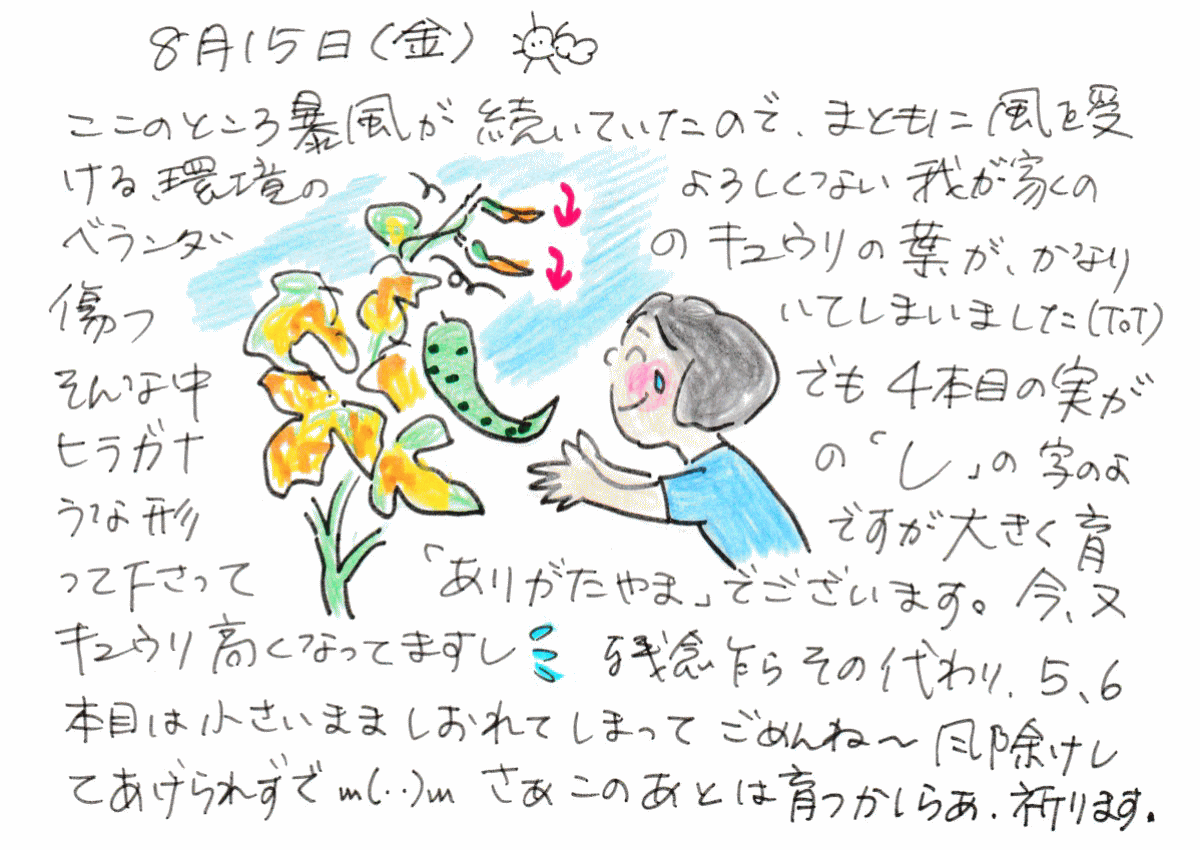 8月15日(金)
ここのところ暴風が続いていたので、まともに風を受
ける環境のよろしくない我が家くの
ベランダのキュウリの葉が、かなり
傷ついてしまいました(ToT)
そんな中でも4本目の実が
ヒラガナの「し」の字のよ
うな形ですが大きく育
って下さって「ありがたやま」でございます。今、又
キュウリ高くなってますし 残念乍らその代わり、5、6
本目は小さいまましおれてしまってごめんね〜風除けし
てあげられずでm(..)m さぁこのあとは育つかしらあ.祈ります.